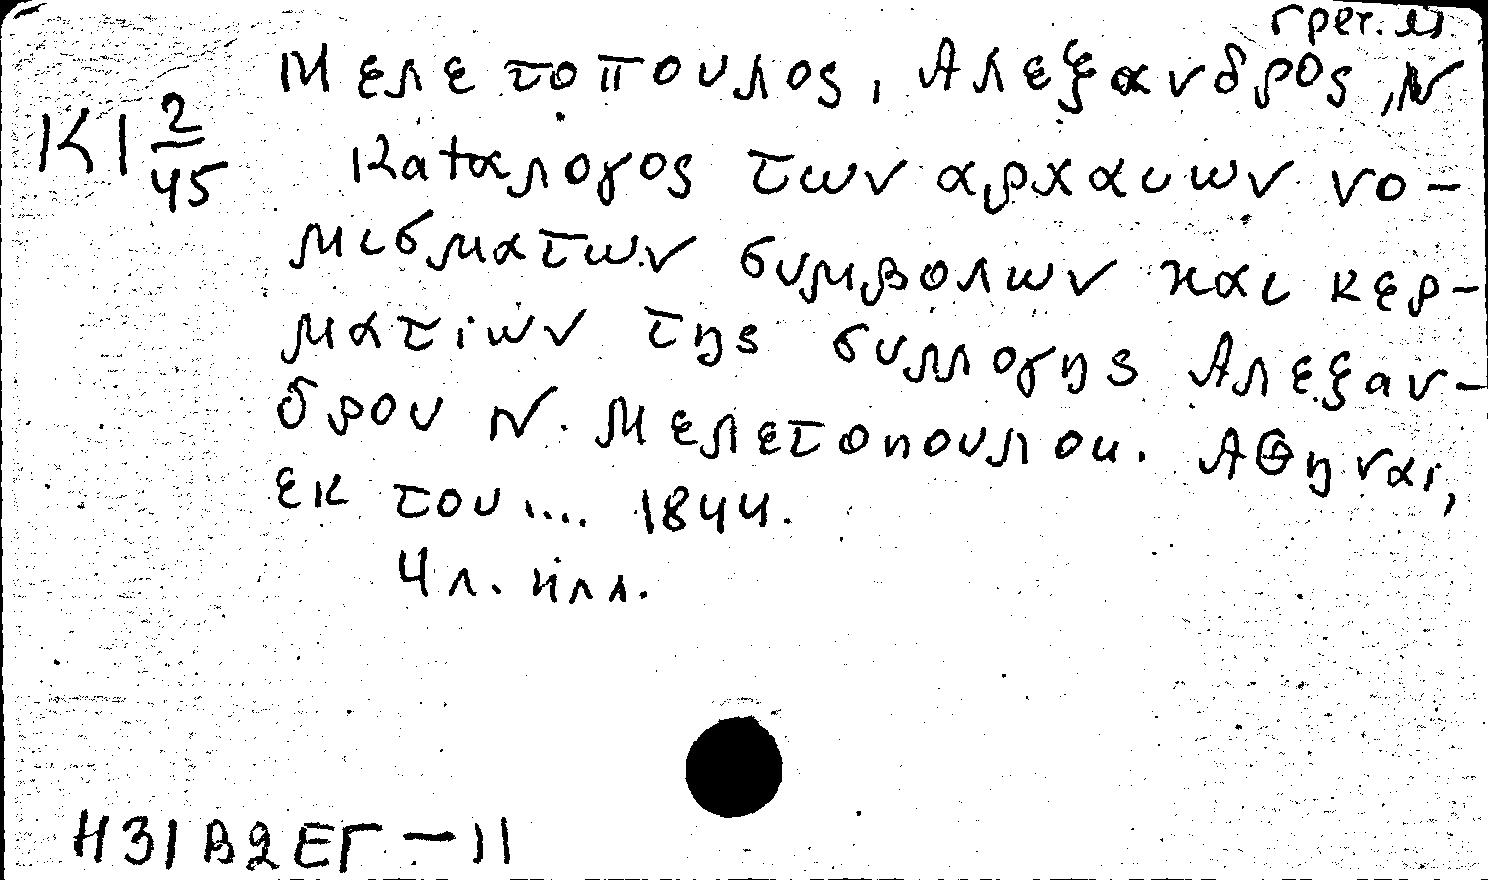 греч. яз.
Μελετοπουλος, Αλεξανδρος, Ν
КІ 2/45
Καταλογος των αρχαιων νο-
μισματων συμβολων και κερ-
ματιων της συλλογης Αλεξαν-
δρου Ν. Μελετοπουλου. Αθηναι,
εκ του.... 1844.
4 л. илл.
Н31В2ЕГ-11